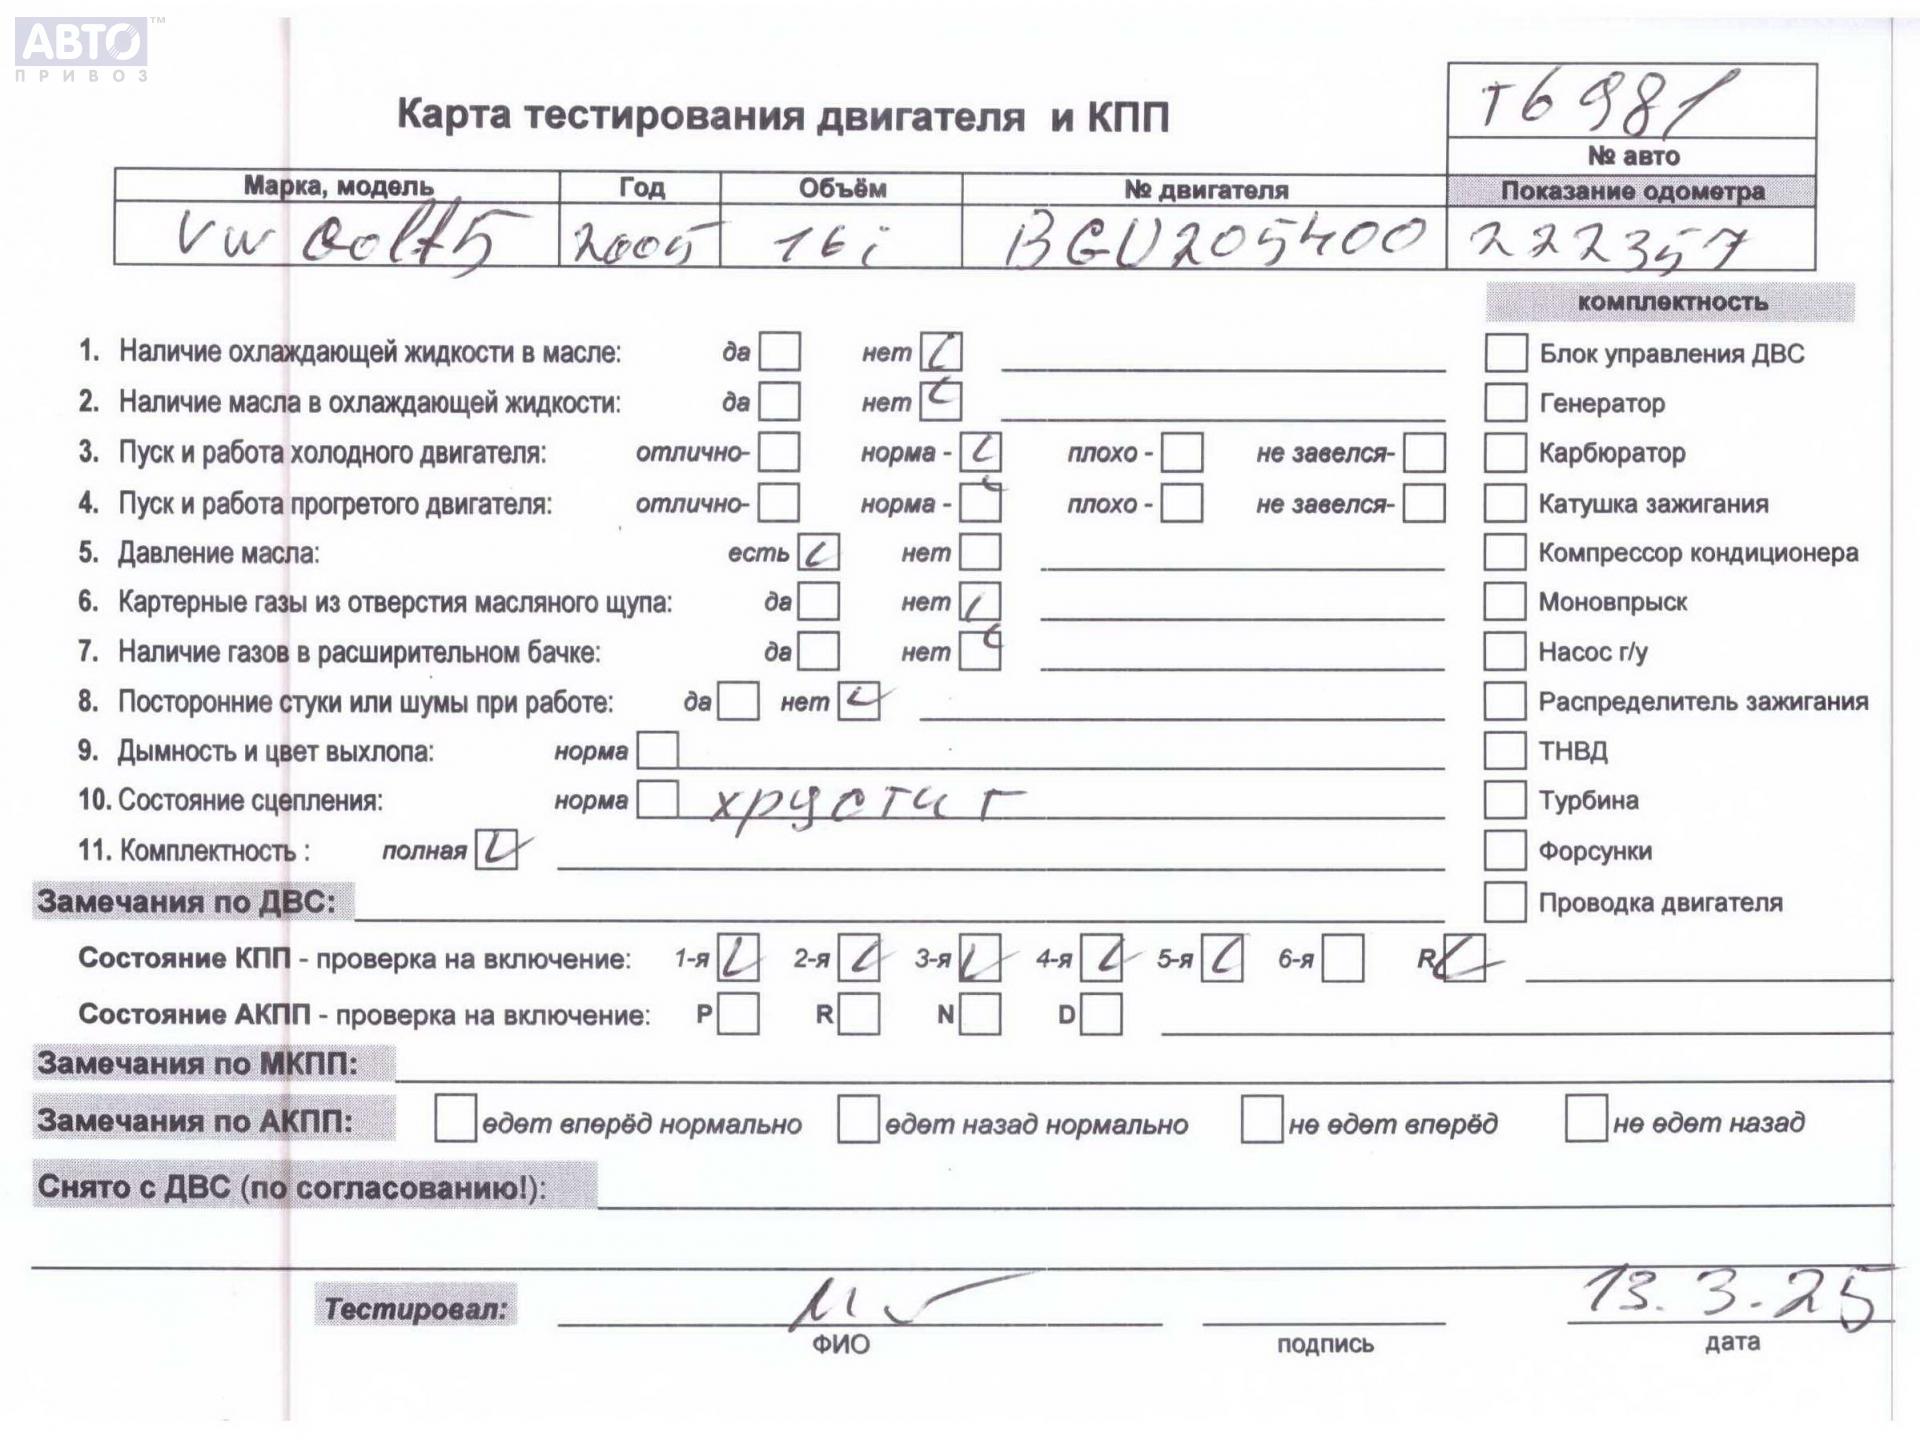 АВТО™
ПРИВОЗ
Карта тестирования двигателя и КПП
Т6981
№ авто
Марка, модель Год Объём № двигателя Показание одометра
VW Golf5 2005 16i BGU205400 222357
комплектность
1. Наличие охлаждающей жидкости в масле: да нет Блок управления ДВС
2. Наличие масла в охлаждающей жидкости: да нет Генератор
3. Пуск и работа холодного двигателя: отлично- норма - плохо - не завелся- Карбюратор
4. Пуск и работа прогретого двигателя: отлично- норма - плохо - не завелся- Катушка зажигания
5. Давление масла: есть нет Компрессор кондиционера
6. Картерные газы из отверстия масляного щупа: да нет Моновпрыск
7. Наличие газов в расширительном бачке: да нет Насос г/у
8. Посторонние стуки или шумы при работе: да нет Распределитель зажигания
9. Дымность и цвет выхлопа: норма ТНВД
10. Состояние сцепления: норма хрустит Турбина
11. Комплектность : полная Форсунки
Замечания по ДВС: Проводка двигателя
Состояние КПП - проверка на включение: 1-я 2-я 3-я 4-я 5-я 6-я R
Состояние АКПП - проверка на включение: P R N D
Замечания по МКПП:
Замечания по АКПП: едет вперёд нормально едет назад нормально не едет вперёд не едет назад
Снято с ДВС (по согласованию!):
Тестировал: 13.3.25
ФИО подпись дата